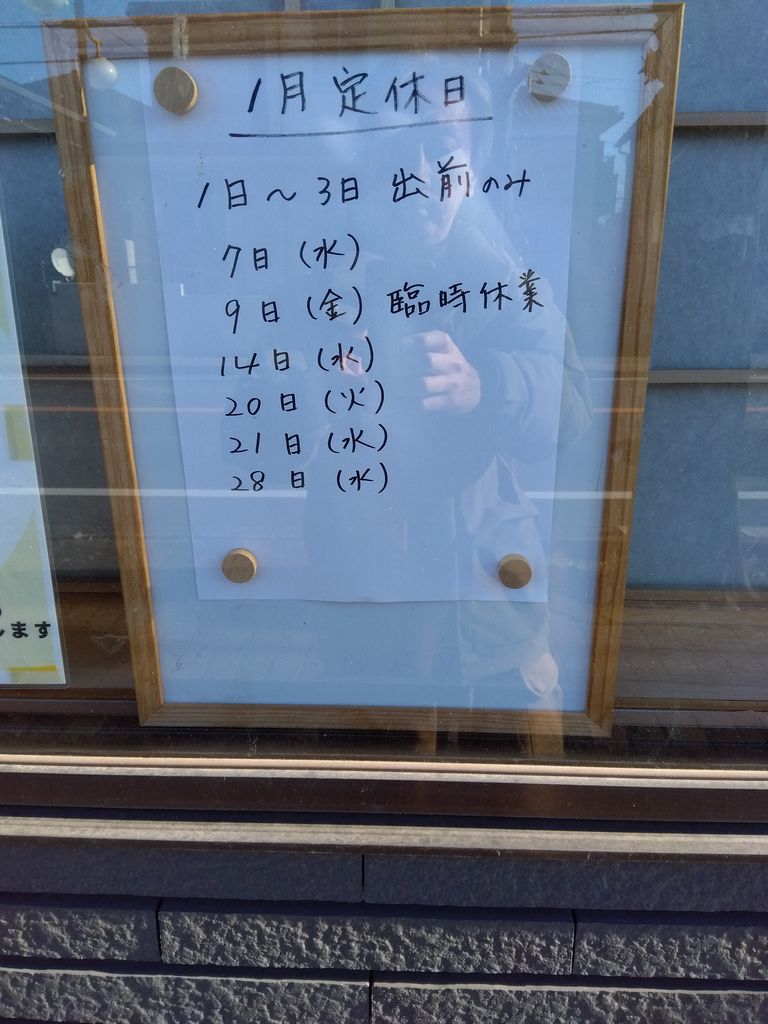 1月定休日
1日～3日 出前のみ
7日(水)
9日(金) 臨時休業
14日(水)
20日(火)
21日(水)
28日(水)
します